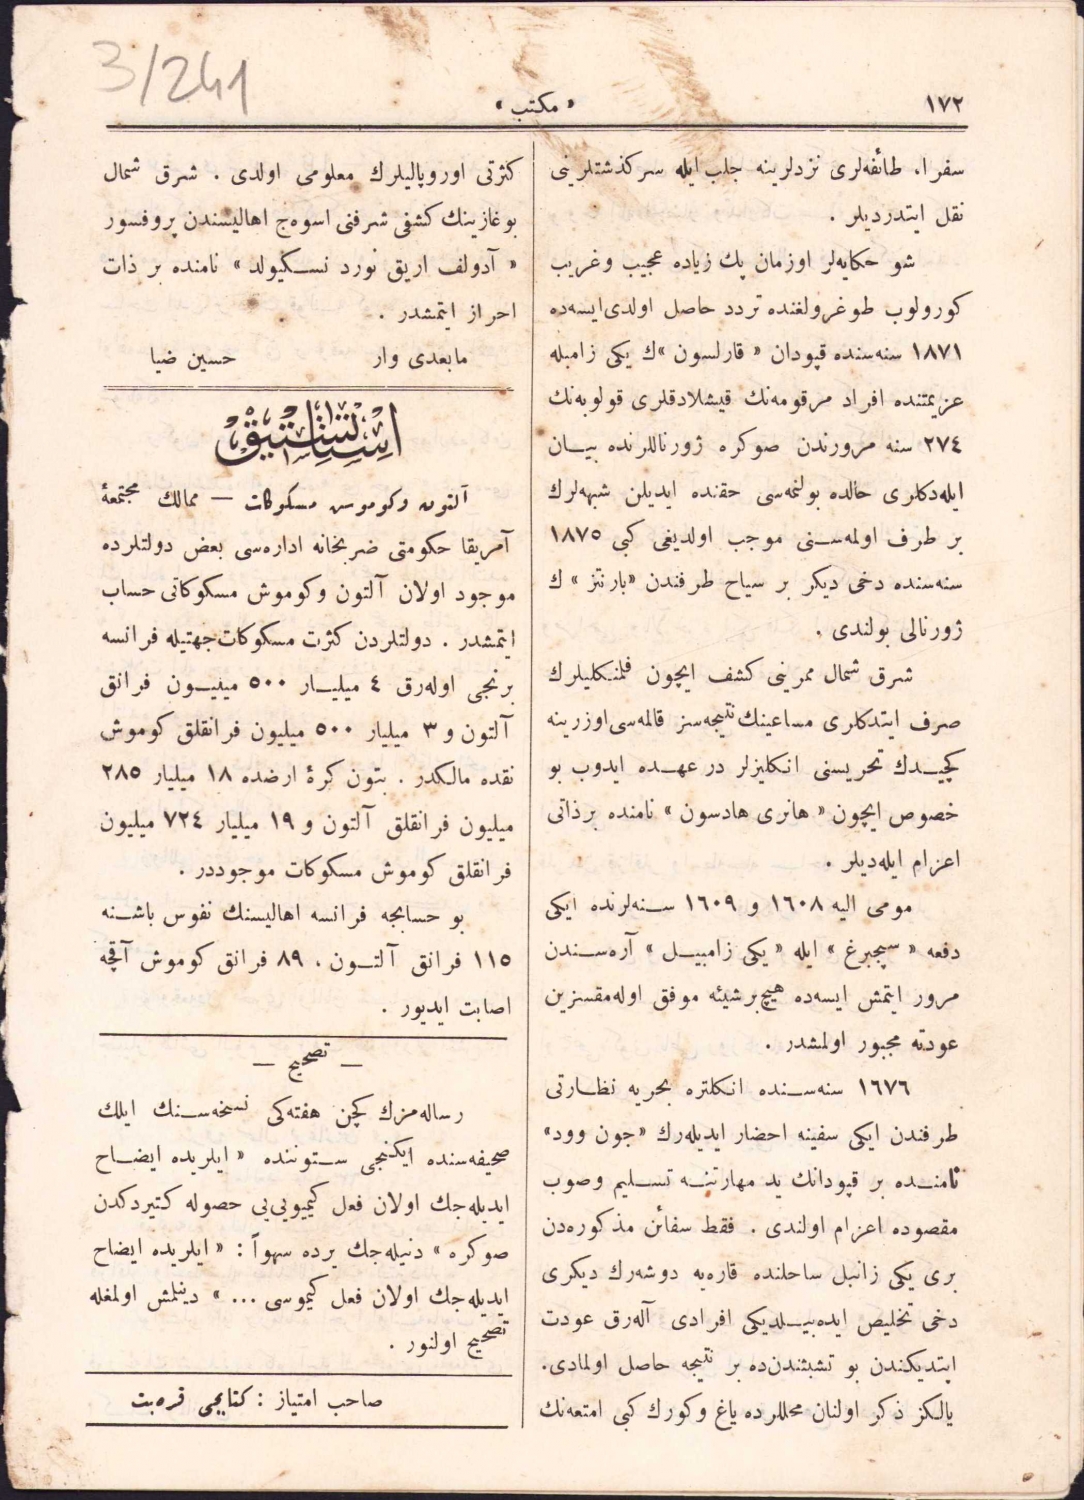 3/241
١٧٢
« مكتب »
سفرا، طائفه‌لرى نزدلرينه جلب ايله سركذشتلرينى
نقل ايتدرديلر .
شو حكايه‌لر اوزمان پك زياده عجيب وغريب
كورولوب طوغرولغنده تردد حاصل اولدى ايسه‌ده
١٨٧١ سنه‌سنده قپودان « قارلسون »ك يكى زامبله
عزيمتنده افراد مرقومه‌نك قيشلادقلرى قولوبه‌نك
٢٧٤ سنه مرورندن صوكره ژورناللرنده بيـان
ايله‌دكلرى حالده بولنمه‌سى حقنده ايديلن شبهه‌لرك
بر طرف اولمه‌سـنى موجب اولديغى كبى ١٨٧٥
سنه‌سنده دخى ديكر بر سياح طرفندن «بارنتز » ك
ژورنالى بولندى .
شرق شمال ممرينى كشف ايچون فلمنكليلرك
صرف ايتدكلرى مساعينك نتيجه‌سز قالمه‌سى اوزرينه
كچيـدك تحريسنى انكليزلر در عهـده ايدوب بو
خصوص ايچون « هانرى هادسون » نامنده برذاتى
اعزام ايله‌ديلر .
مومى اليه ١٦٠٨ و ١٦٠٩ سـنه‌لرنده ايكى
دفعه « سپچبرغ » ايله « يكى زامبيـل » آره‌سـندن
مرور ايتمش ايسه‌ده هيچ برشيئه موفق اوله‌مقسزين
عودته مجبور اولمشدر .
١٦٧٦ سنه‌سـنده انكلتره بحريه نظـارتى
طرفندن ايكى سفينه احضار ايديله‌رك «جون وود»
نامنـده بر قپودانك يد مهارتنـه تسـليم وصوب
مقصوده اعزام اولندى . فقط سفائن مذكوره‌دن
برى يكى زانبل ساحلنده قاره‌يه دوشه‌رك ديكرى
دخى تخليص ايده‌بيـلديكى افرادى آله‌رق عودت
ايتديكندن بو تشبثندن‌ده بر نتيجه حاصل اولمادى.
يالكز ذكر اولنان محللرده ياغ وكورك كبى امتعه‌نك
كثرتى اوروپاليلرك معلومى اولدى . شرق شمال
بوغازينك كشفى شرفنى اسوه‌ج اهاليسندن پروفسور
« آدولف اريق نورد نسـكيولد » نامنده بر ذات
احراز ايتمشدر .
مابعدى وار
حسين ضيا
استاتستيق
آلتون وكوموس مسكوكات — ممالك مجتمعۀ
آمريقا حكومتى ضربخانه اداره‌سى بعض دولتلرده
موجود اولان آلتون وكوموش مسكوكاتى حساب
ايتمشدر . دولتلردن كثرت مسكوكات جهتيله فرانسه
برنجى اوله‌رق ٤ ميليـار ٥٠٠ ميليـون فرانق
آلتون و ٣ ميليار ٥٠٠ ميليون فرانقلق كوموش
نقده مالكدر . بتون كرۀ ارضده ١٨ ميليار ٢٨٥
ميليون فرانقلق آلتون و ١٩ ميليار ٧٢٤ ميليون
فرانقلق كوموش مسكوكات موجوددر .
بو حسابجه فرانسه اهاليسنك نفوس باشـنه
١١٥ فرانق آلتـون ، ٨٩ فرانق كوموش آقچه
اصابت ايديور .
— تصحيح —
رساله‌مزك كچن هفته‌كى نسخه‌سـنك ايلك
صحيفه‌سنده ايكنجى سـتوننده « ايلريده ايضـاح
ايديله‌جك اولان فعل كيميويى‌يى حصوله كتيردكدن
صوكره » دنيله‌جك يرده سهواً : « ايلريده ايضاح
ايديله‌جك اولان فعل كيموسى ... » دينلمش اولمغله
تصحيح اولنور .
صاحب امتياز : كتابجى قره‌بت